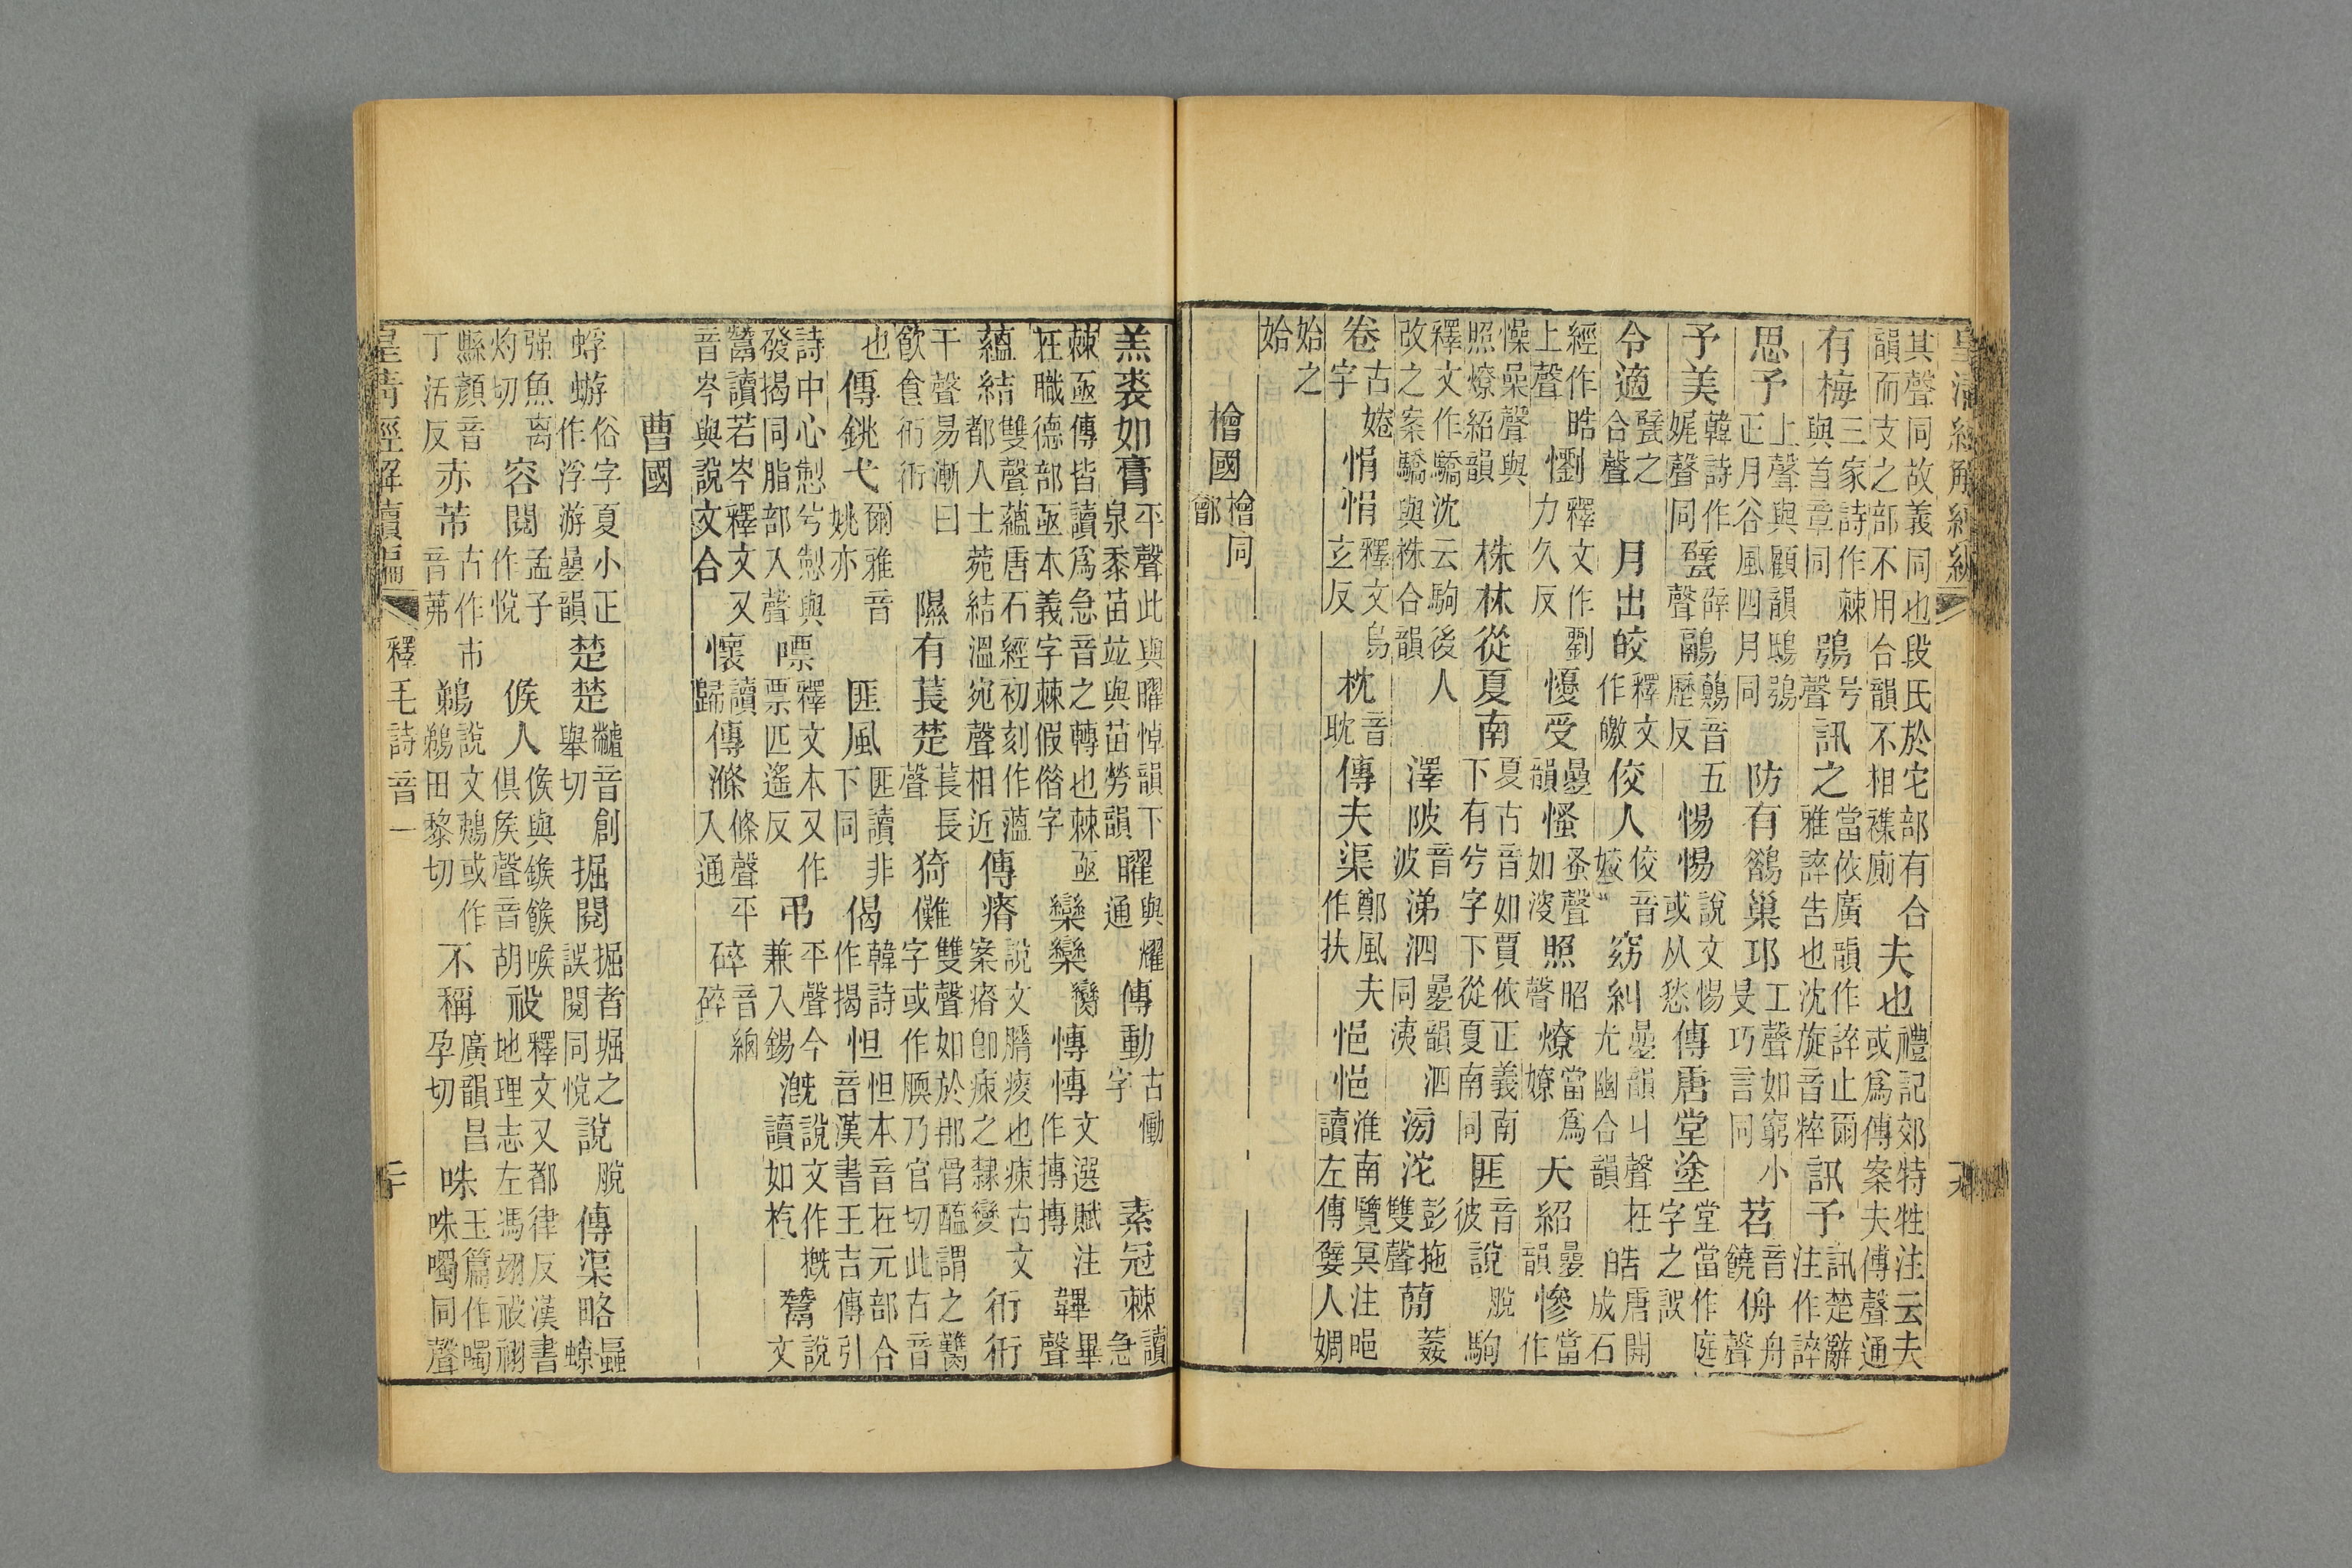 皇清經解續編
其聲同故義同也段氏於宅部有合韻而支之部不用合韻不相襍廁夫也禮記郊特牲注云夫或爲傅案夫傅聲通
有梅三家詩作棘與首章同鴞号聲訊之當依廣韻作誶止爾雅誶告也沈旋音粹訊予音訊楚辭注作誶
思予上聲與顧韻鴟鴞正月谷風四月同防有鵲巢邛工聲如窮小旻巧言同苕音饒侜舟聲
予美韓詩作娓聲同甓辟聲鷊鷊音五歷反惕惕說文惕或从愁傳唐堂塗堂當作庭字之誤
令適甓之合聲月出皎釋文作皦佼人佼音姣窈糾曡韻丩聲在尤幽合韻皓唐開成石
經作晧上聲懰釋文作劉力久反慢受曡韻慅蚤聲如溲照昭聲燎當爲嫽夭紹曡韻慘當作
懆喿聲與照燎紹韻株林從夏南夏古音如賈依正義南下有兮字下從夏南同匪音彼說脫駒
釋文作驕沈云駒後人改之案驕與株合韻澤陂音波涕泗曡韻泗同洟滂沱彭拖雙聲蕑葌
卷古婘字悁悁釋文烏玄反枕音耽傳夫渠鄭風夫作扶悒悒淮南覽冥注悒讀左傳嬖人婤
始之始
檜國檜同鄶
羔裘如膏平聲此與曜悼韻下泉黍苗竝與苗勞韻曜與耀通傳動古慟字素冠棘讀急
棘亟傳皆讀爲急音之轉也棘亟在職德部亟本義字棘假偺字欒欒臠慱慱文選賦注作摶摶韠畢聲
蘊結雙聲蘊唐石經初刻作薀都人士菀結溫宛聲相近傳瘠說文膌瘦也㾊古文案瘠卽㾊之隸變衎衎
干聲易漸曰飮食衎衎隰有萇楚萇長聲猗儺雙聲如於那骨醖謂之臡字或作腝乃官切此古音
也傳銚弋爾雅音姚亦匪風匪讀非下同偈韓詩作揭怛怛本音在元部合音漢書王吉傳引
詩中心㓭兮㓭與發揭同脂部入聲嘌釋文本又作票匹遙反弔平聲今兼入錫溉說文作摡讀如杚鬵說文
鬵讀若岑釋文又音岑與說文合懷讀歸傳滌條聲平入通碎音碎
曹國
蜉蝣俗字夏小正作浮游曡韻楚楚黼音創舉切掘閱掘者堀之誤閱同悅說脫傳渠略
强魚离灼切容閱孟子作悅候人候與鍭餱喉俱矦聲音胡祋釋文又都律反漢書地理志左馮翊祋祤
縣顏音丁活反赤芾古作巿音茀鵜說文鶗或作鵜田黎切不稱廣韻昌孕切咮玉篇作噣咮噣同聲
皇清經解續編 釋毛詩音一 二十